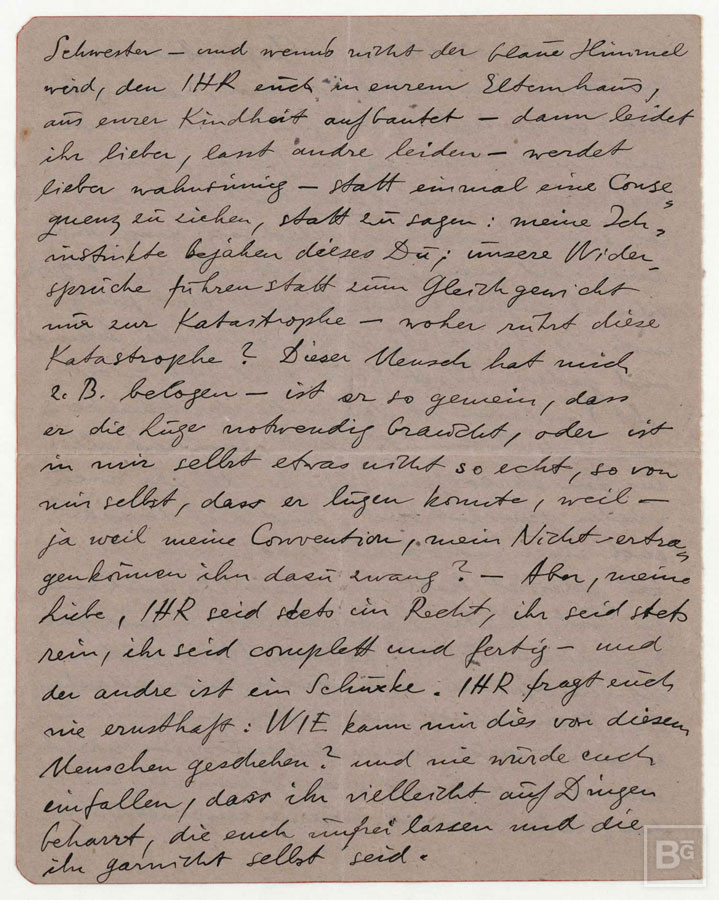 Schwester – und wenns nicht der blaue Himmel
wird, den IHR euch in eurem Elternhaus,
aus eurer Kindheit aufbautet – dann leidet
ihr lieber, lasst andre leiden – werdet
lieber wahnsinnig – statt einmal eine Conse=
quenz zu ziehen, statt zu sagen: meine Ich=
instinkte bejahen dieses Du; unsere Wider=
sprüche führen statt zum Gleichgewicht
nur zur Katastrophe – woher rührt diese
Katastrophe? Dieser Mensch hat mich
z. B. belogen – ist er so gemein, dass
er die Lüge notwendig braucht, oder ist
in mir selbst etwas nicht so echt, so von
mir selbst, dass er lügen konnte, weil –
ja weil meine Convention, mein Nicht-ertra=
genkönnen ihn dazu zwang? – Aber, meine
Liebe, IHR seid stets im Recht, ihr seid stets
rein, ihr seid complett und fertig – und
der andre ist ein Schurke. IHR fragt euch
nie ernsthaft: WIE kann mir dies von diesem
Menschen geschehen? und nie würde euch
einfallen, dass ihr vielleicht auf Dingen
beharrt, die euch unfrei lassen und die
ihr garnicht selbst seid.
BG